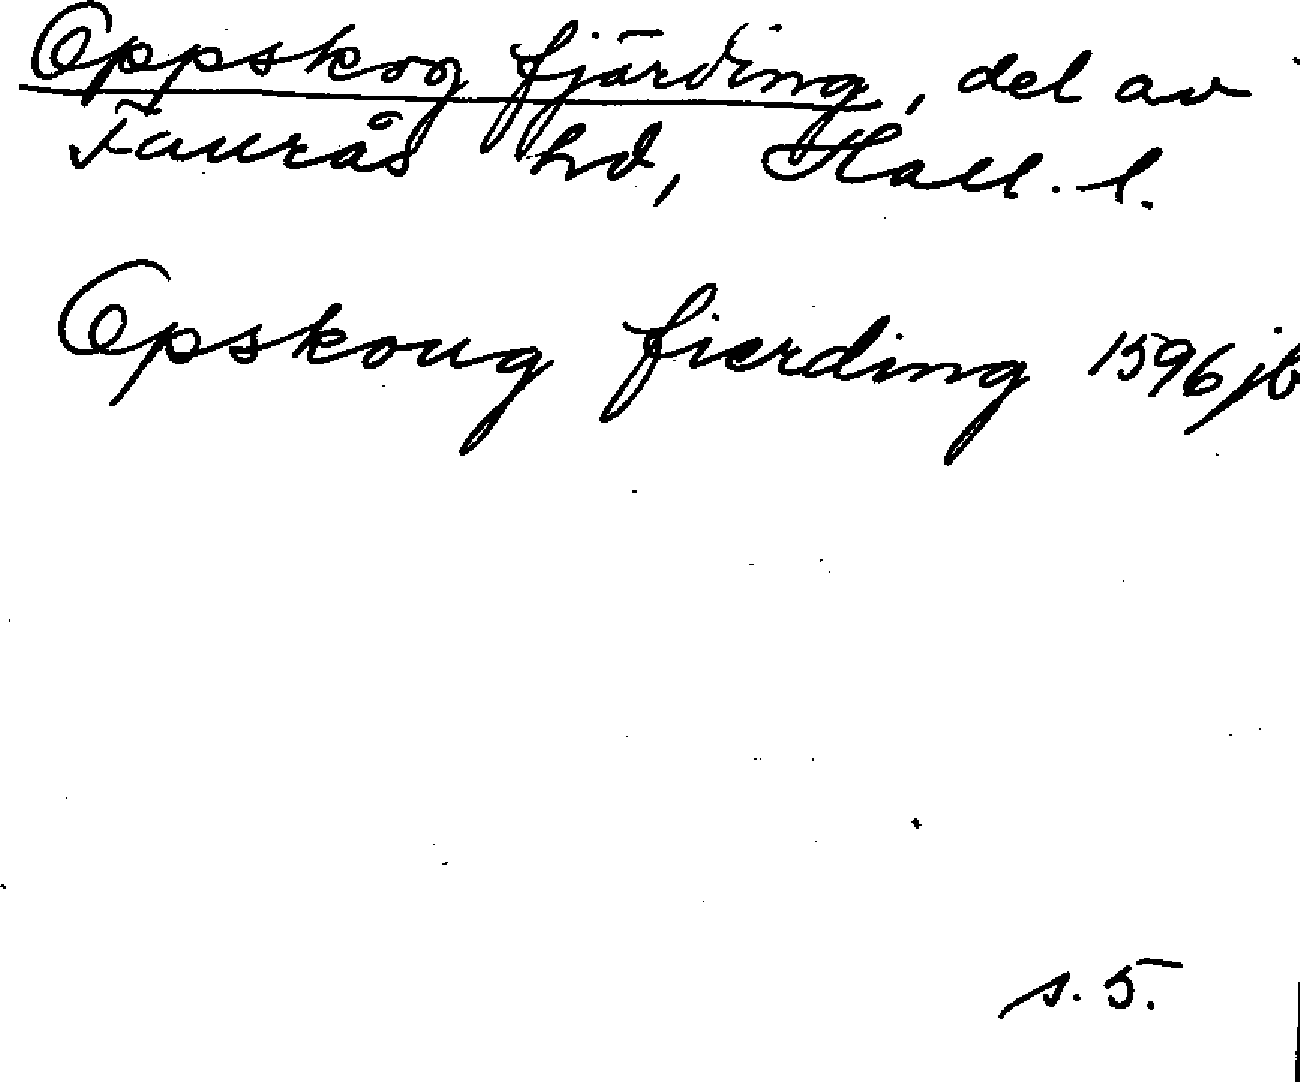 Oppskog fjärding, del av
Faurås hd, Hall. l.
Opskoug fierding 1596 jb
s. 5.